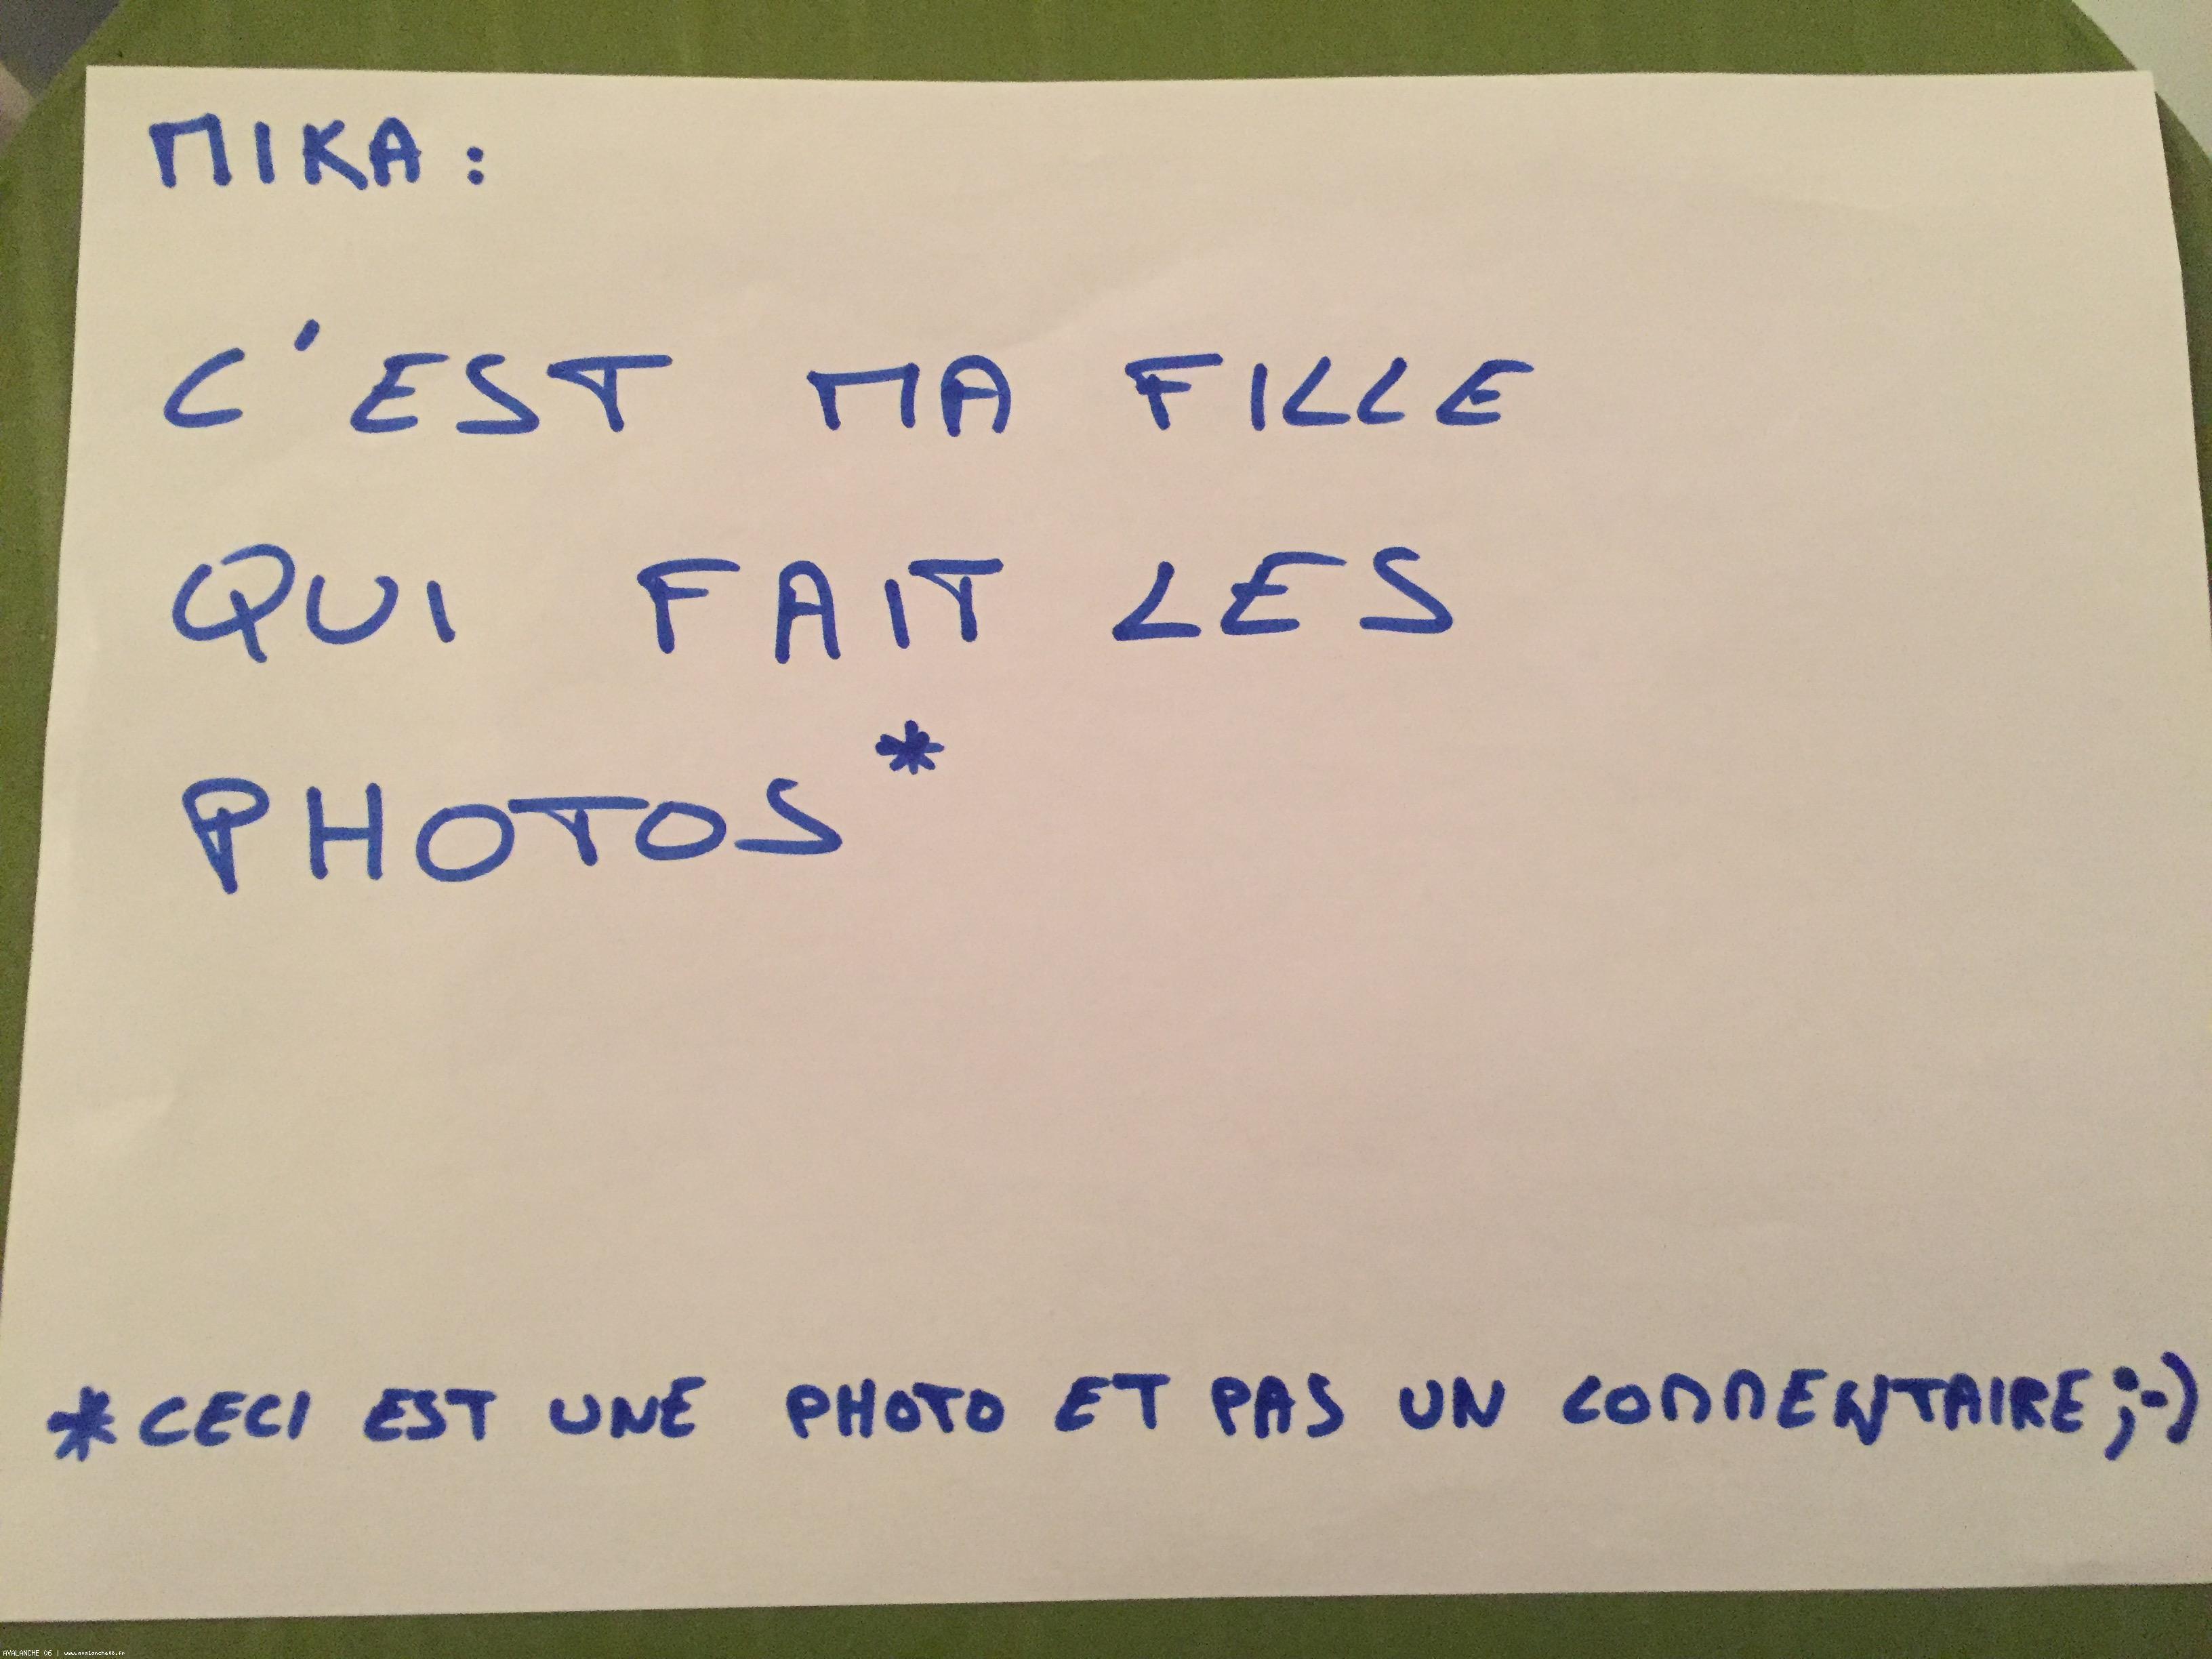 MIKA :
C'EST MA FILLE
QUI FAIT LES
PHOTOS*
*CECI EST UNE PHOTO ET PAS UN COMMENTAIRE ;-)
AVALANCHE 06 | www.avalanche06.fr